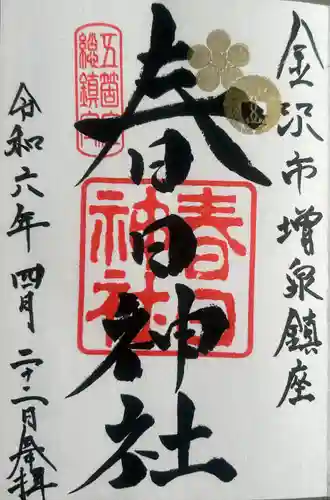 金沢市増泉鎮座
春日神社
春日
神社
五箇庄
総鎮守
令和六年 四月 二十二日 奉拝